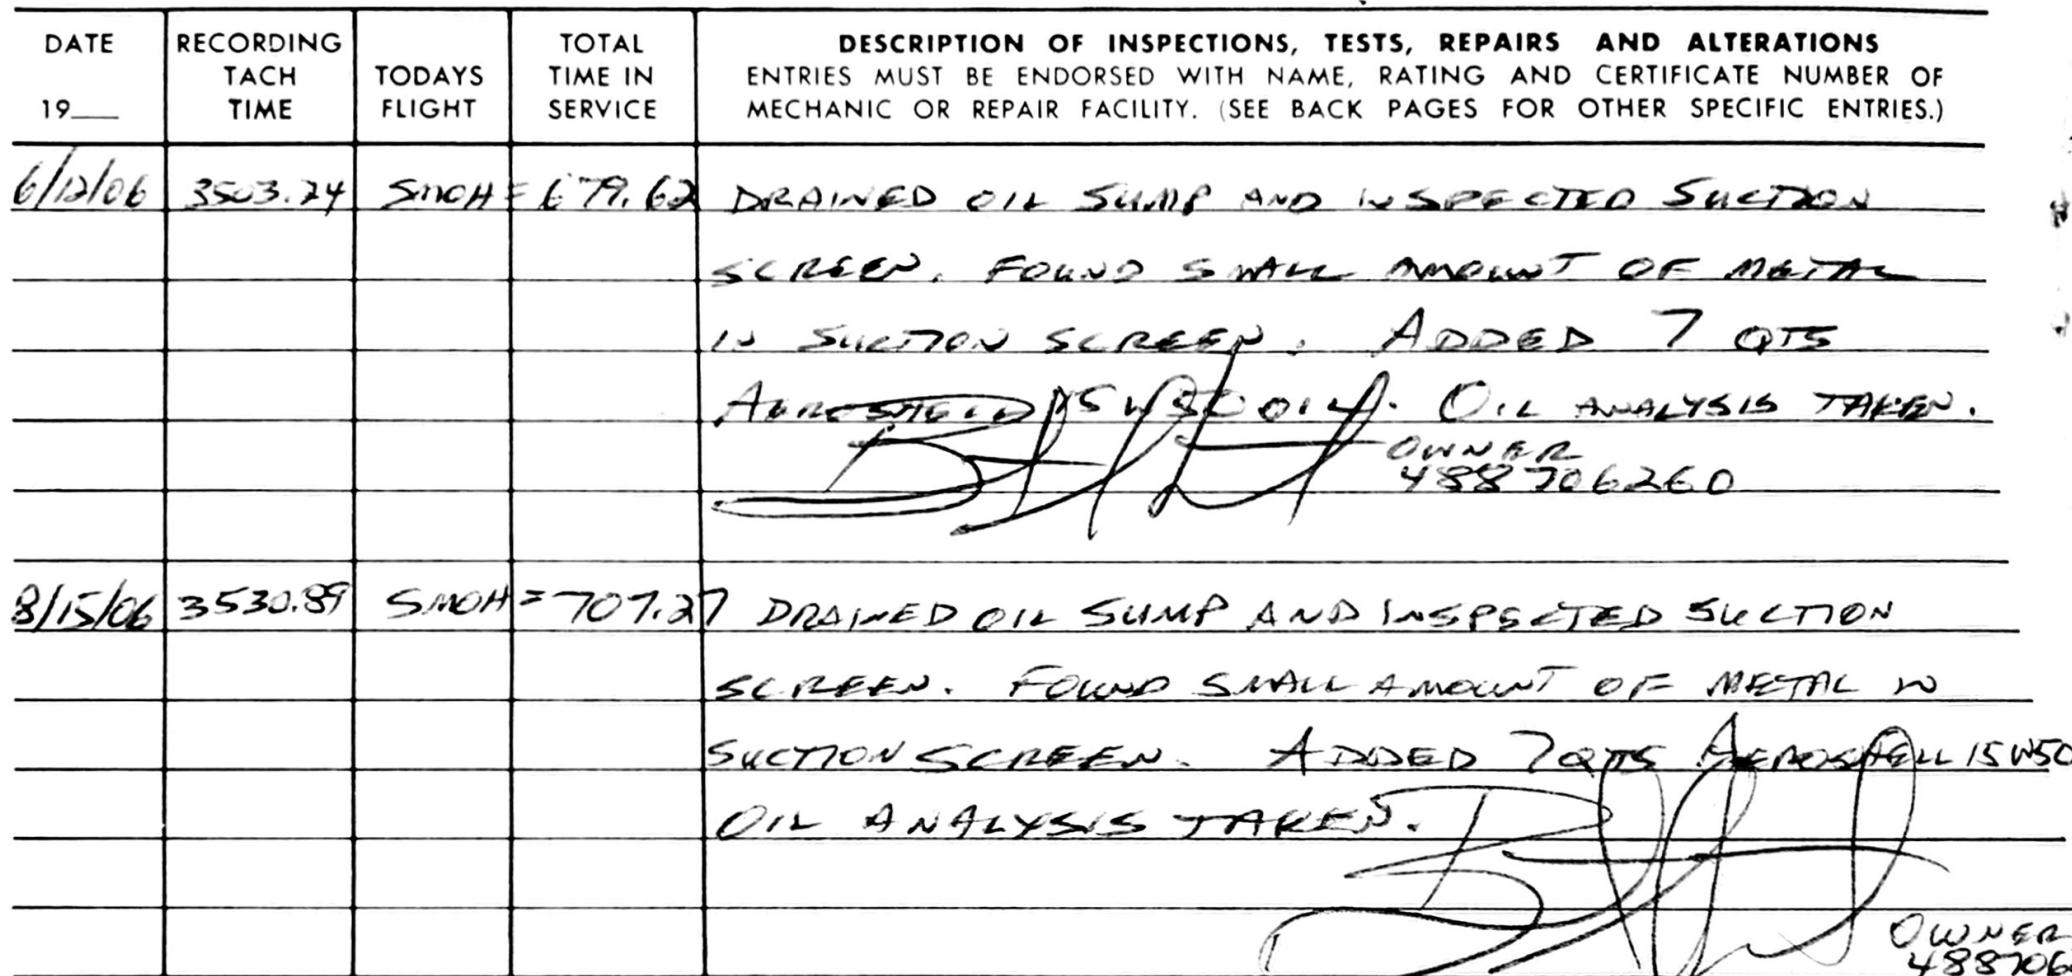 DATE RECORDING TODAYS TOTAL DESCRIPTION OF INSPECTIONS, TESTS, REPAIRS AND ALTERATIONS
TACH FLIGHT TIME IN ENTRIES MUST BE ENDORSED WITH NAME, RATING AND CERTIFICATE NUMBER OF
19__ TIME SERVICE MECHANIC OR REPAIR FACILITY. (SEE BACK PAGES FOR OTHER SPECIFIC ENTRIES.)
6/12/06 3503.24 SMOH = 679.62 DRAINED OIL SUMP AND INSPECTED SUCTION
SCREEN. FOUND SMALL AMOUNT OF METAL
IN SUCTION SCREEN. ADDED 7 QTS
OIL. OIL ANALYSIS TAKEN.
OWNER
488706260
8/15/06 3530.89 SMOH = 707.27 DRAINED OIL SUMP AND INSPECTED SUCTION
SCREEN. FOUND SMALL AMOUNT OF METAL IN
SUCTION SCREEN. ADDED 7 QTS AEROSHELL 15W50
OIL ANALYSIS TAKEN.
OWNER
488706